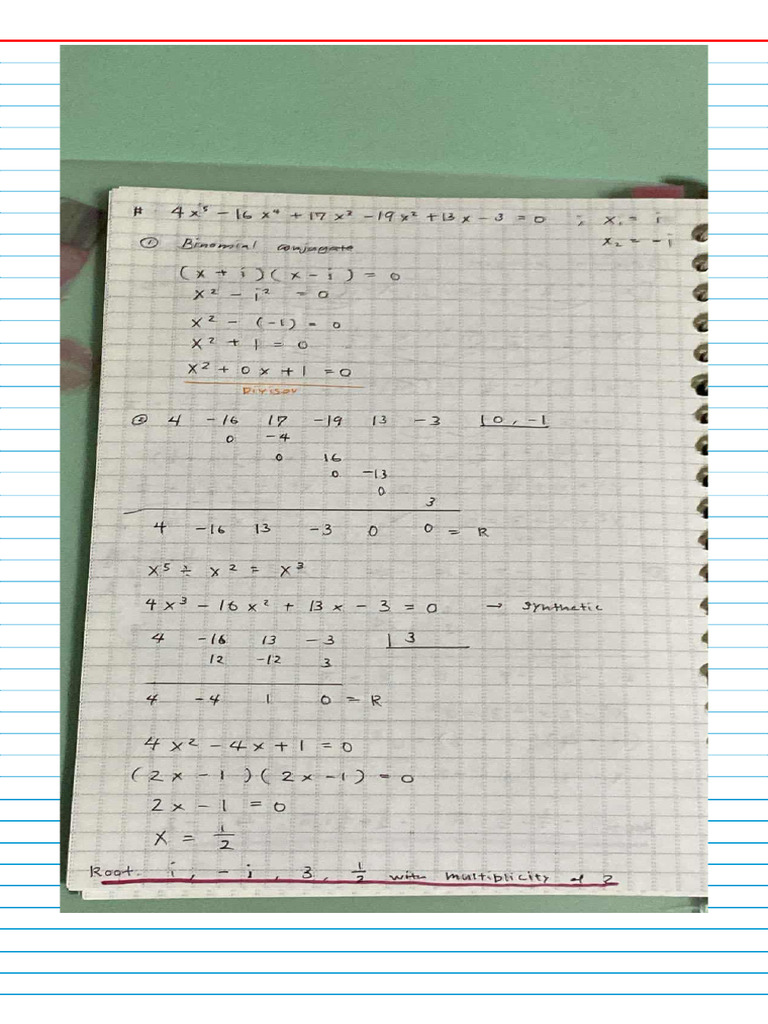 # 4x⁵ - 16x⁴ + 17x² - 19x² + 13x - 3 = 0 ; x₁ = i
x₂ = -i
① Binomial conjugate
(x + i)(x - i) = 0
x² - i² = 0
x² - (-1) = 0
x² + 1 = 0
x² + 0x + 1 = 0
Divisor
② 4 -16 17 -19 13 -3 | 0, -1
0 -4
0 16
0 -13
0
3
4 -16 13 -3 0 0 = R
x⁵ ÷ x² = x³
4x³ - 16x² + 13x - 3 = 0 → synthetic
4 -16 13 -3 | 3
12 -12 3
4 -4 1 0 = R
4x² - 4x + 1 = 0
(2x - 1)(2x - 1) = 0
2x - 1 = 0
x = 1/2
Root. i, -i, 3, 1/2 with multiplicity of 2